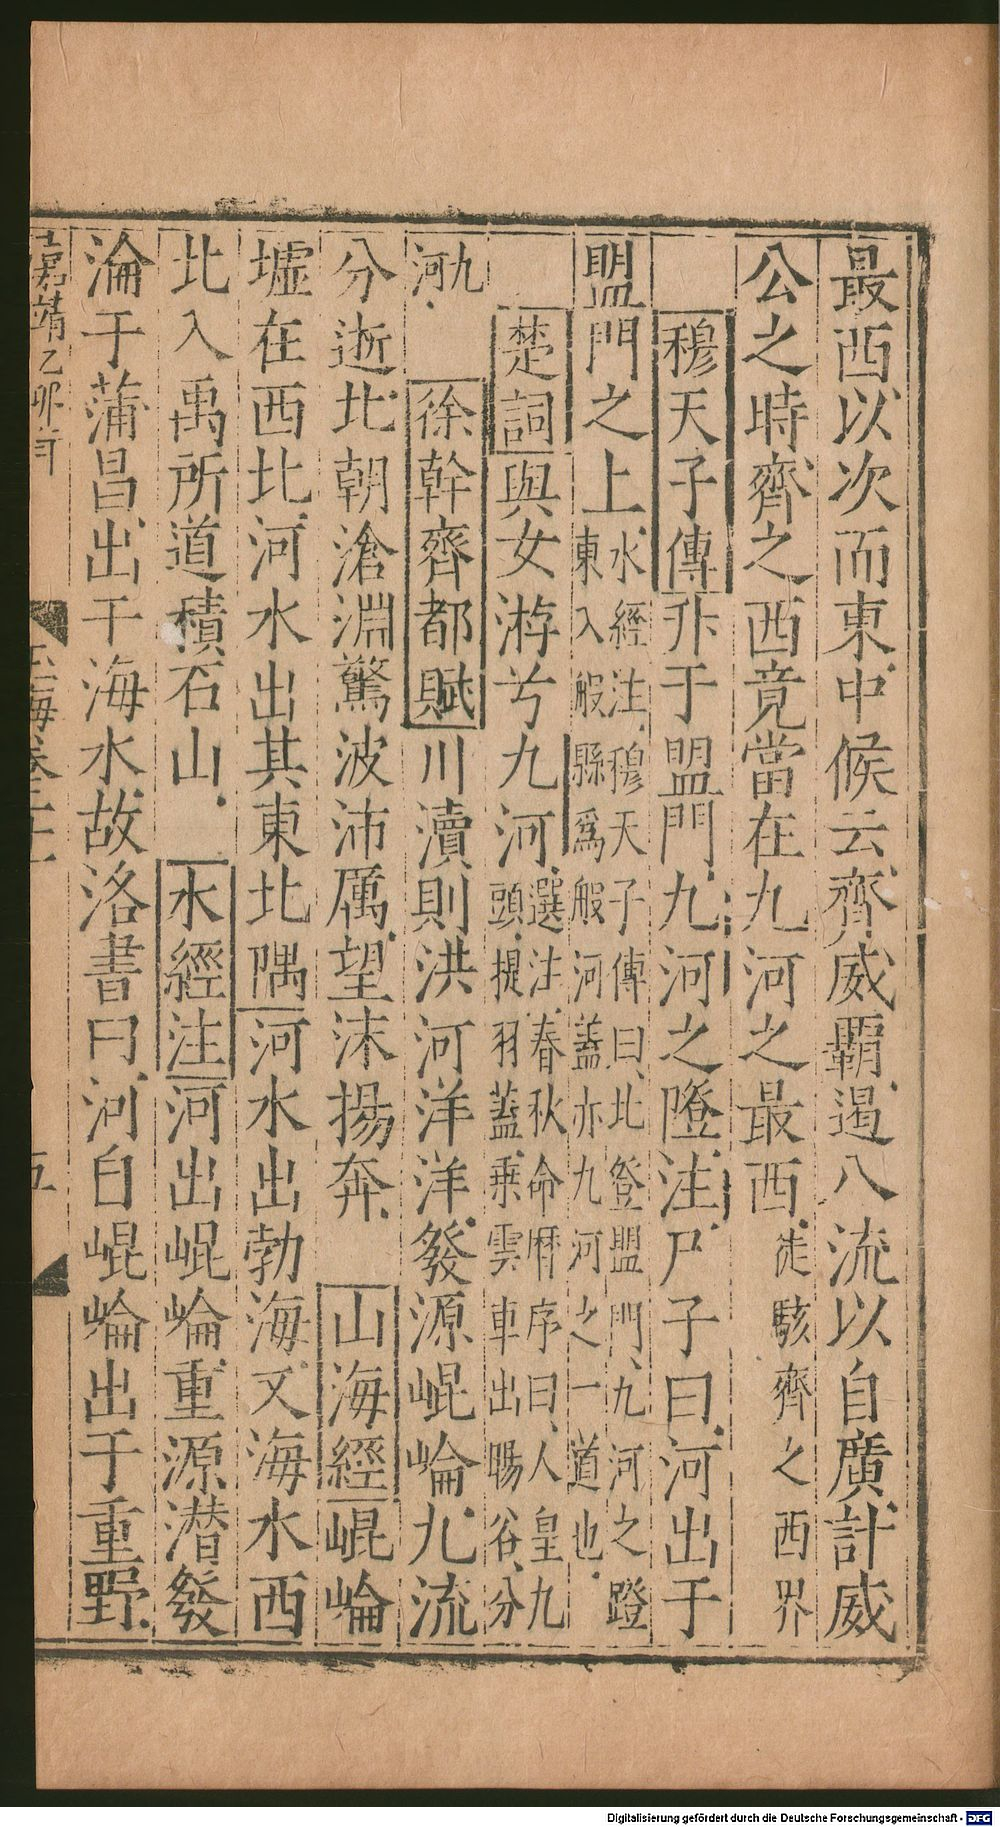 最西以次而東中候云齊威霸遏八流以自廣計威
公之時齊之西竟當在九河之最西徒駭齊之西界
穆天子傳升于盟門九河之隥注尸子曰河出于
盟門之上水經注穆天子傳曰北登盟門九河之蹬東入般縣爲般河蓋亦九河之一道也
楚詞與女游兮九河選注春秋命曆序曰人皇九頭提羽蓋乘雲車出暘谷分
九河 徐幹齊都賦川瀆則洪河洋洋發源崐崘九流
分逝北朝滄淵驚波沛厲望沫揚奔 山海經崐崘
墟在西北河水出其東北隅河水出勃海又海水西
北入禹所道積石山 水經注河出崐崘重源潜發
淪于蒲昌出于海水故洛書曰河自崐崘出于重野
嘉靖乙卯
玉海卷二十 五
Digitalisierung gefördert durch die Deutsche Forschungsgemeinschaft - DFG